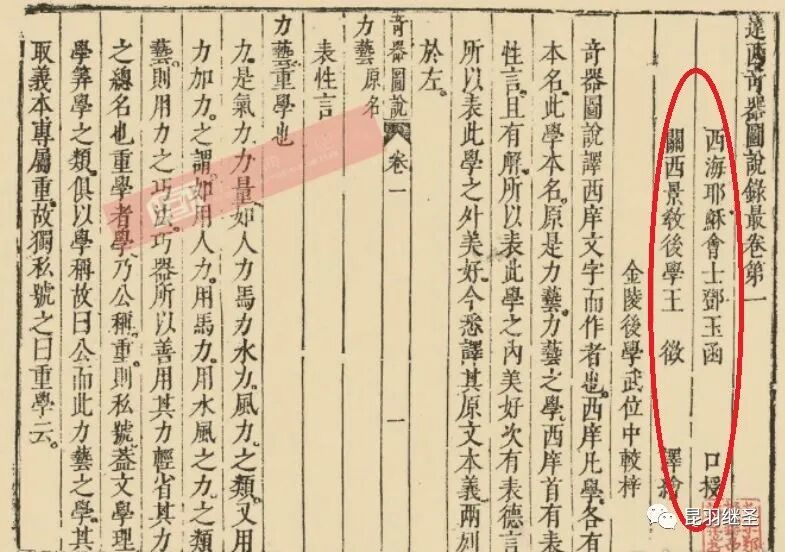 遠西奇器圖說錄最卷第一
西海耶穌會士鄧玉函 口授
關西景教後學王 徵 譯繪
金陵後學武位中較梓
奇器圖說譯西庠文字而作者也西庠凡學各有
本名此學本名原是力藝力藝之學西庠首有表
性言且有解所以表此學之內美好次有表德言
所以表此學之外美好今悉譯其原文本義兩列
於左
奇器圖說 卷一 一
力藝原名
表性言
力藝重學也
力是氣力力量如人力馬力水力風力之類又用
力加力之謂如用人力用馬力用水風之力之類
藝則用力之巧法巧器所以善用其力輕省其力
之總名也重學者學乃公稱重則私號蓋文學理
學算學之類俱以學稱故曰公而此力藝之學其
取義本專屬重故獨私號之曰重學云
昆羽继圣